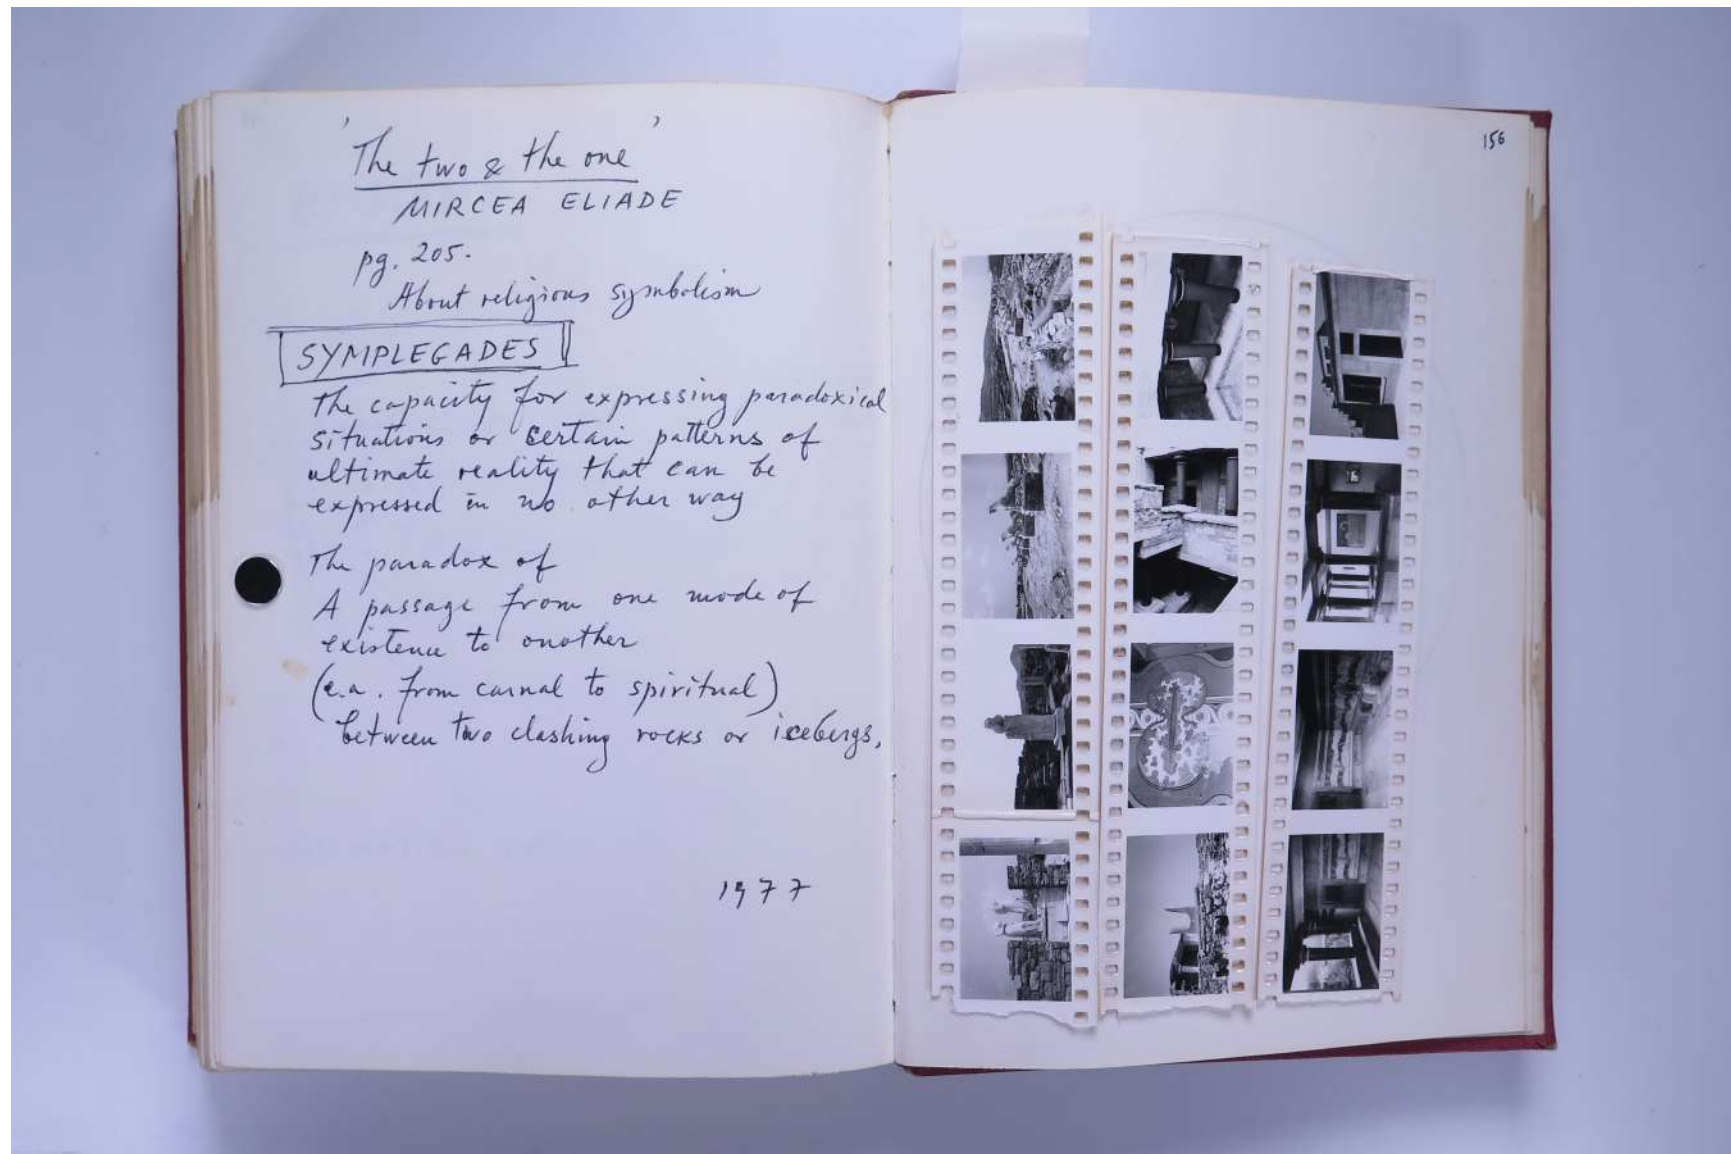 'The two & the one'
MIRCEA ELIADE
pg. 205.
About religious symbolism
SYMPLEGADES
The capacity for expressing paradoxical
situations or certain patterns of
ultimate reality that can be
expressed in no other way
The paradox of
A passage from one mode of
existence to another
(e.a. from carnal to spiritual)
between two clashing rocks or icebergs,
1977
156